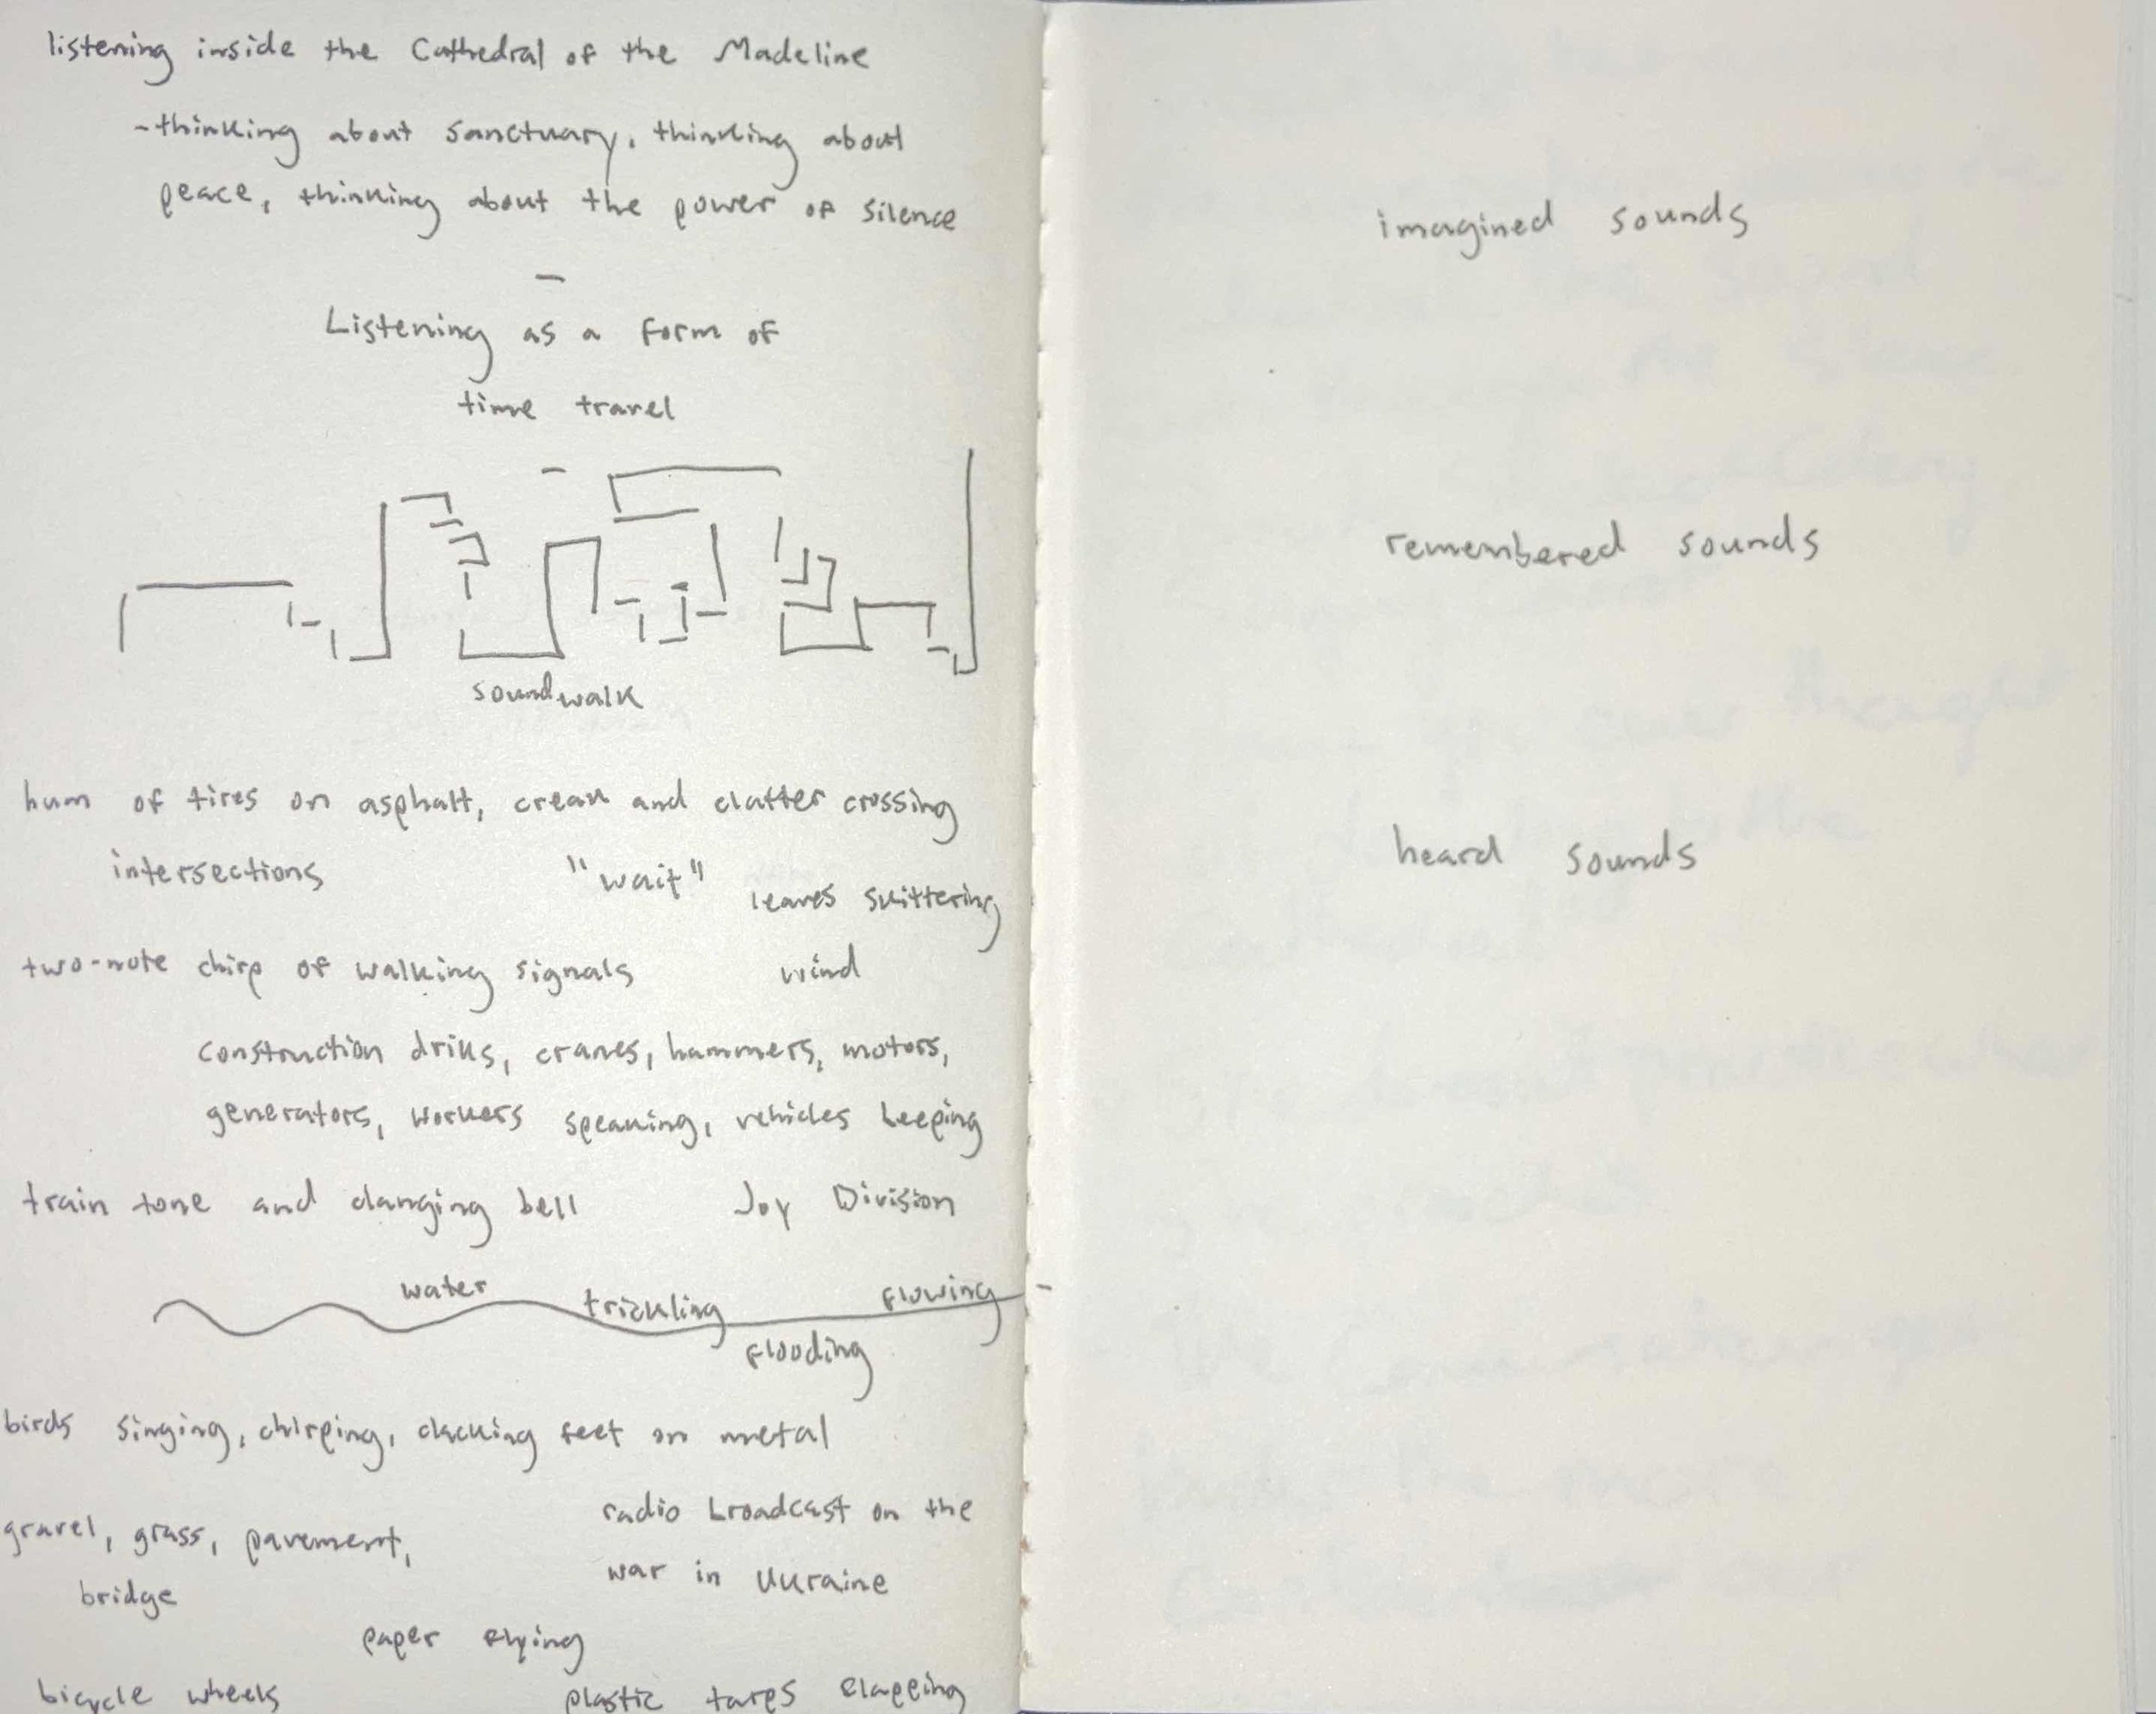 listening inside the Cathedral of the Madeline
-thinking about sanctuary, thinking about
peace, thinking about the power of silence
Listening as a form of
time travel
soundwalk
hum of tires on asphalt, creak and clatter crossing
intersections
"wait"
leaves skittering
two-note chirp of walking signals
wind
construction drills, cranes, hammers, motors,
generators, workers speaking, vehicles beeping
train tone and clanging bell
Joy Division
water
trickling
flowing
flooding
birds singing, chirping, clacking feet on metal
gravel, grass, pavement,
bridge
radio broadcast on the
war in Ukraine
paper flying
bicycle wheels
plastic tarps flapping
imagined sounds
remembered sounds
heard sounds